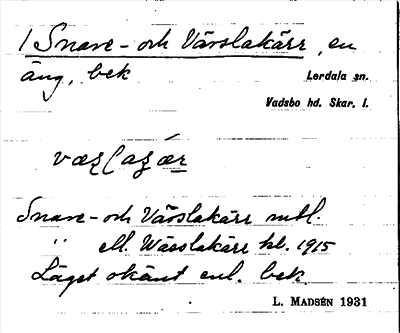 / Snare- och Vårslakärr, en
äng, bek
Lerdala sn.
Vadsbo hd. Skar. l.
Snare- och Vårslakärr mtl.
" ell. Wässlakärr kl. 1915
Läget okänt enl. bek.
L. MADSÉN 1931